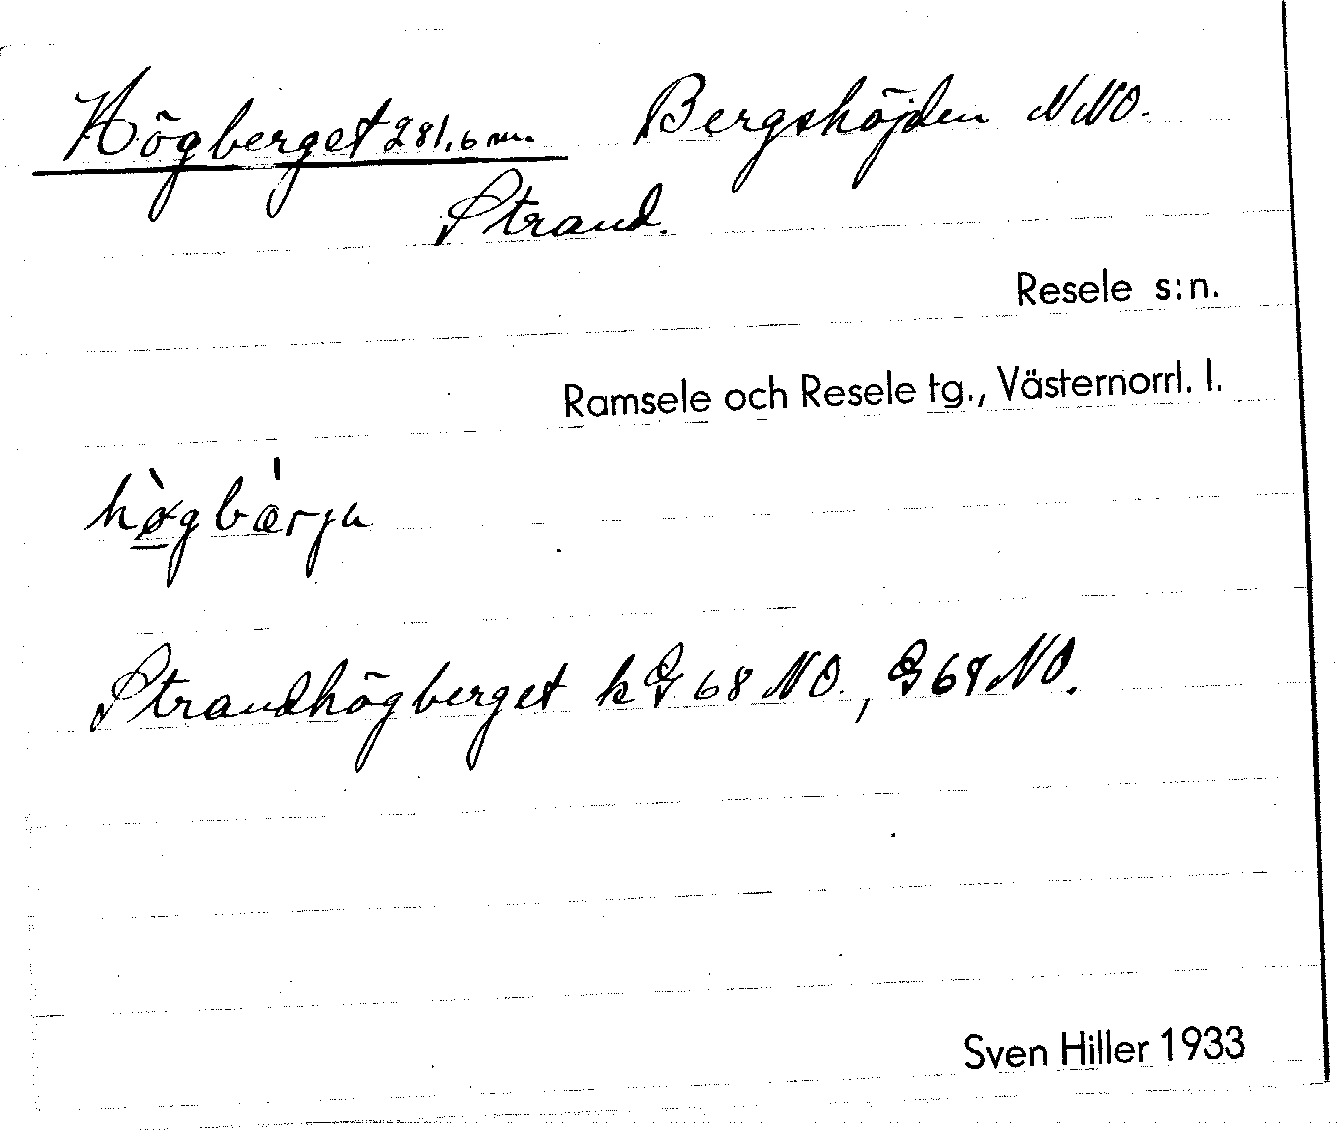 Högberget 281,6 m. Bergshöjden NNO.
Strand.
Resele s:n.
Ramsele och Resele tg., Västernorrl. l.
hø̀gbær̍ja
Strandhögberget k G 68 NO., G 68 NO.
Sven Hiller 1933